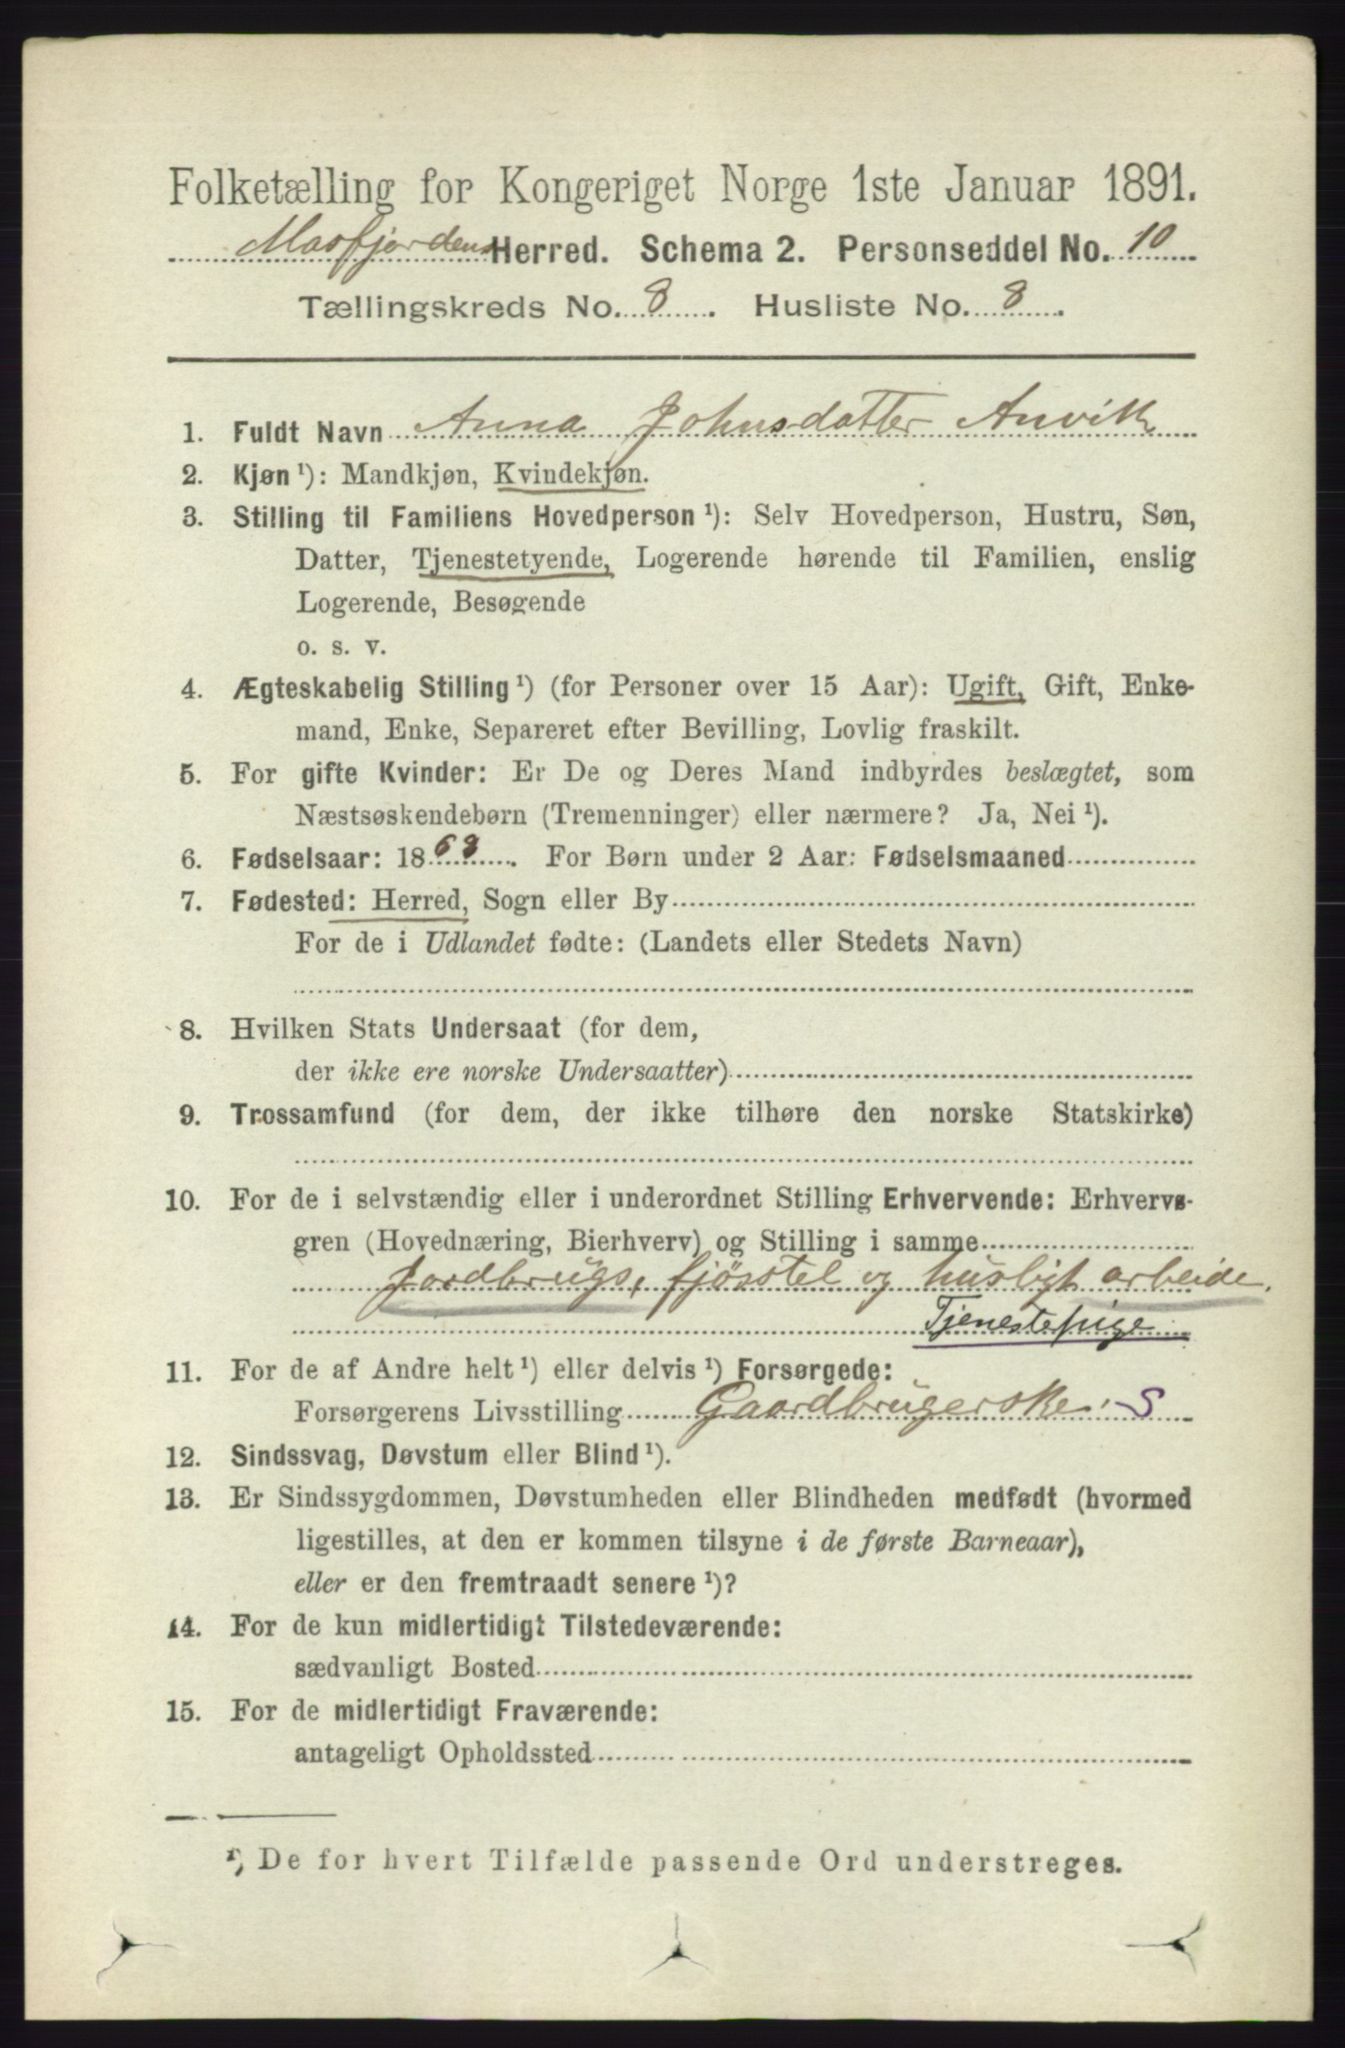 Folketælling for Kongeriget Norge 1ste Januar 1891.
Masfjordens Herred. Schema 2. Personseddel No. 10
Tællingskreds No. 8. Husliste No. 8.
1. Fuldt Navn Anna Johnsdatter Anvik
2. Kjøn ¹): Mandkjøn, Kvindekjøn.
3. Stilling til Familiens Hovedperson ¹): Selv Hovedperson, Hustru, Søn,
Datter, Tjenestetyende, Logerende hørende til Familien, enslig
Logerende, Besøgende
o. s. v.
4. Ægteskabelig Stilling ¹) (for Personer over 15 Aar): Ugift, Gift, Enke-
mand, Enke, Separeret efter Bevilling, Lovlig fraskilt.
5. For gifte Kvinder: Er De og Deres Mand indbyrdes beslægtet, som
Næstsøskendebørn (Tremenninger) eller nærmere? Ja, Nei ¹).
6. Fødselsaar: 1863. For Børn under 2 Aar: Fødselsmaaned
7. Fødested: Herred, Sogn eller By
For de i Udlandet fødte: (Landets eller Stedets Navn)
8. Hvilken Stats Undersaat (for dem,
der ikke ere norske Undersaatter)
9. Trossamfund (for dem, der ikke tilhøre den norske Statskirke)
10. For de i selvstændig eller i underordnet Stilling Erhvervende: Erhvervs-
gren (Hovednæring, Bierhverv) og Stilling i samme
Jordbrugs, fjösstel og husligt arbeide.
Tjenestepige
11. For de af Andre helt ¹) eller delvis ¹) Forsørgede:
Forsørgerens Livsstilling Gaardbrugerske. S
12. Sindssvag, Døvstum eller Blind ¹).
13. Er Sindssygdommen, Døvstumheden eller Blindheden medfødt (hvormed
ligestilles, at den er kommen tilsyne i de første Barneaar),
eller er den fremtraadt senere ¹)?
14. For de kun midlertidigt Tilstedeværende:
sædvanligt Bosted
15. For de midlertidigt Fraværende:
antageligt Opholdssted
¹) De for hvert Tilfælde passende Ord understreges.